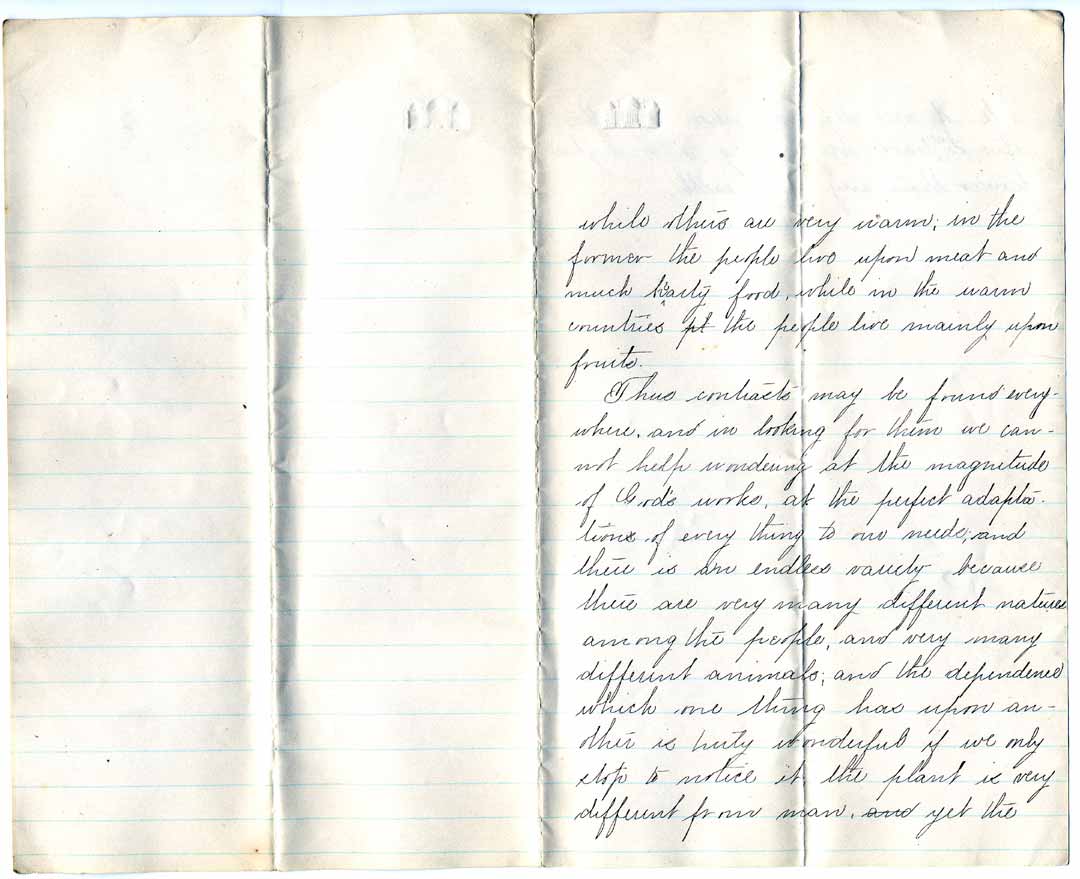 while others are very warm; in the
former the people live upon meat and
much hearty food, while in the warm
countries pt the people live mainly upon
fruits.
Thus contracts may be found every-
where, and in looking for them we can-
not help wondering at the magnitude
of God's works, at the perfect adapta-
tions of every thing to our needs; and
there is an endless variety because
there are very many different natures
among the people, and very many
different animals; and the dependence
which one thing has upon an-
other is truly wonderful if we only
stop to notice it. the plant is very
different from man, and yet the